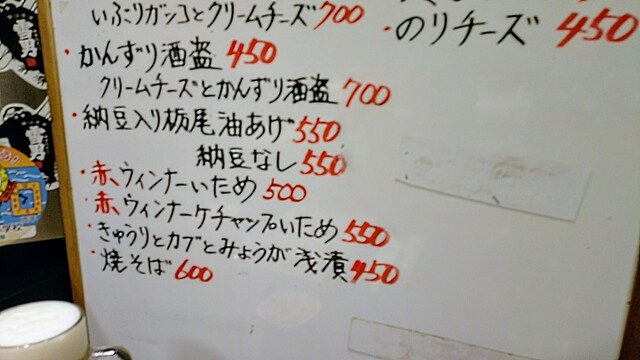 いぶりガッコとクリームチーズ 700
・かんずり酒盗 450
クリームチーズとかんずり酒盗 700
・納豆入り栃尾油あげ 550
納豆なし 550
・赤、ウィンナーいため 500
・赤、ウィンナーケチャップいため 550
・きゅうりとカブとみょうが浅漬 450
・焼そば 600
・のりチーズ 450